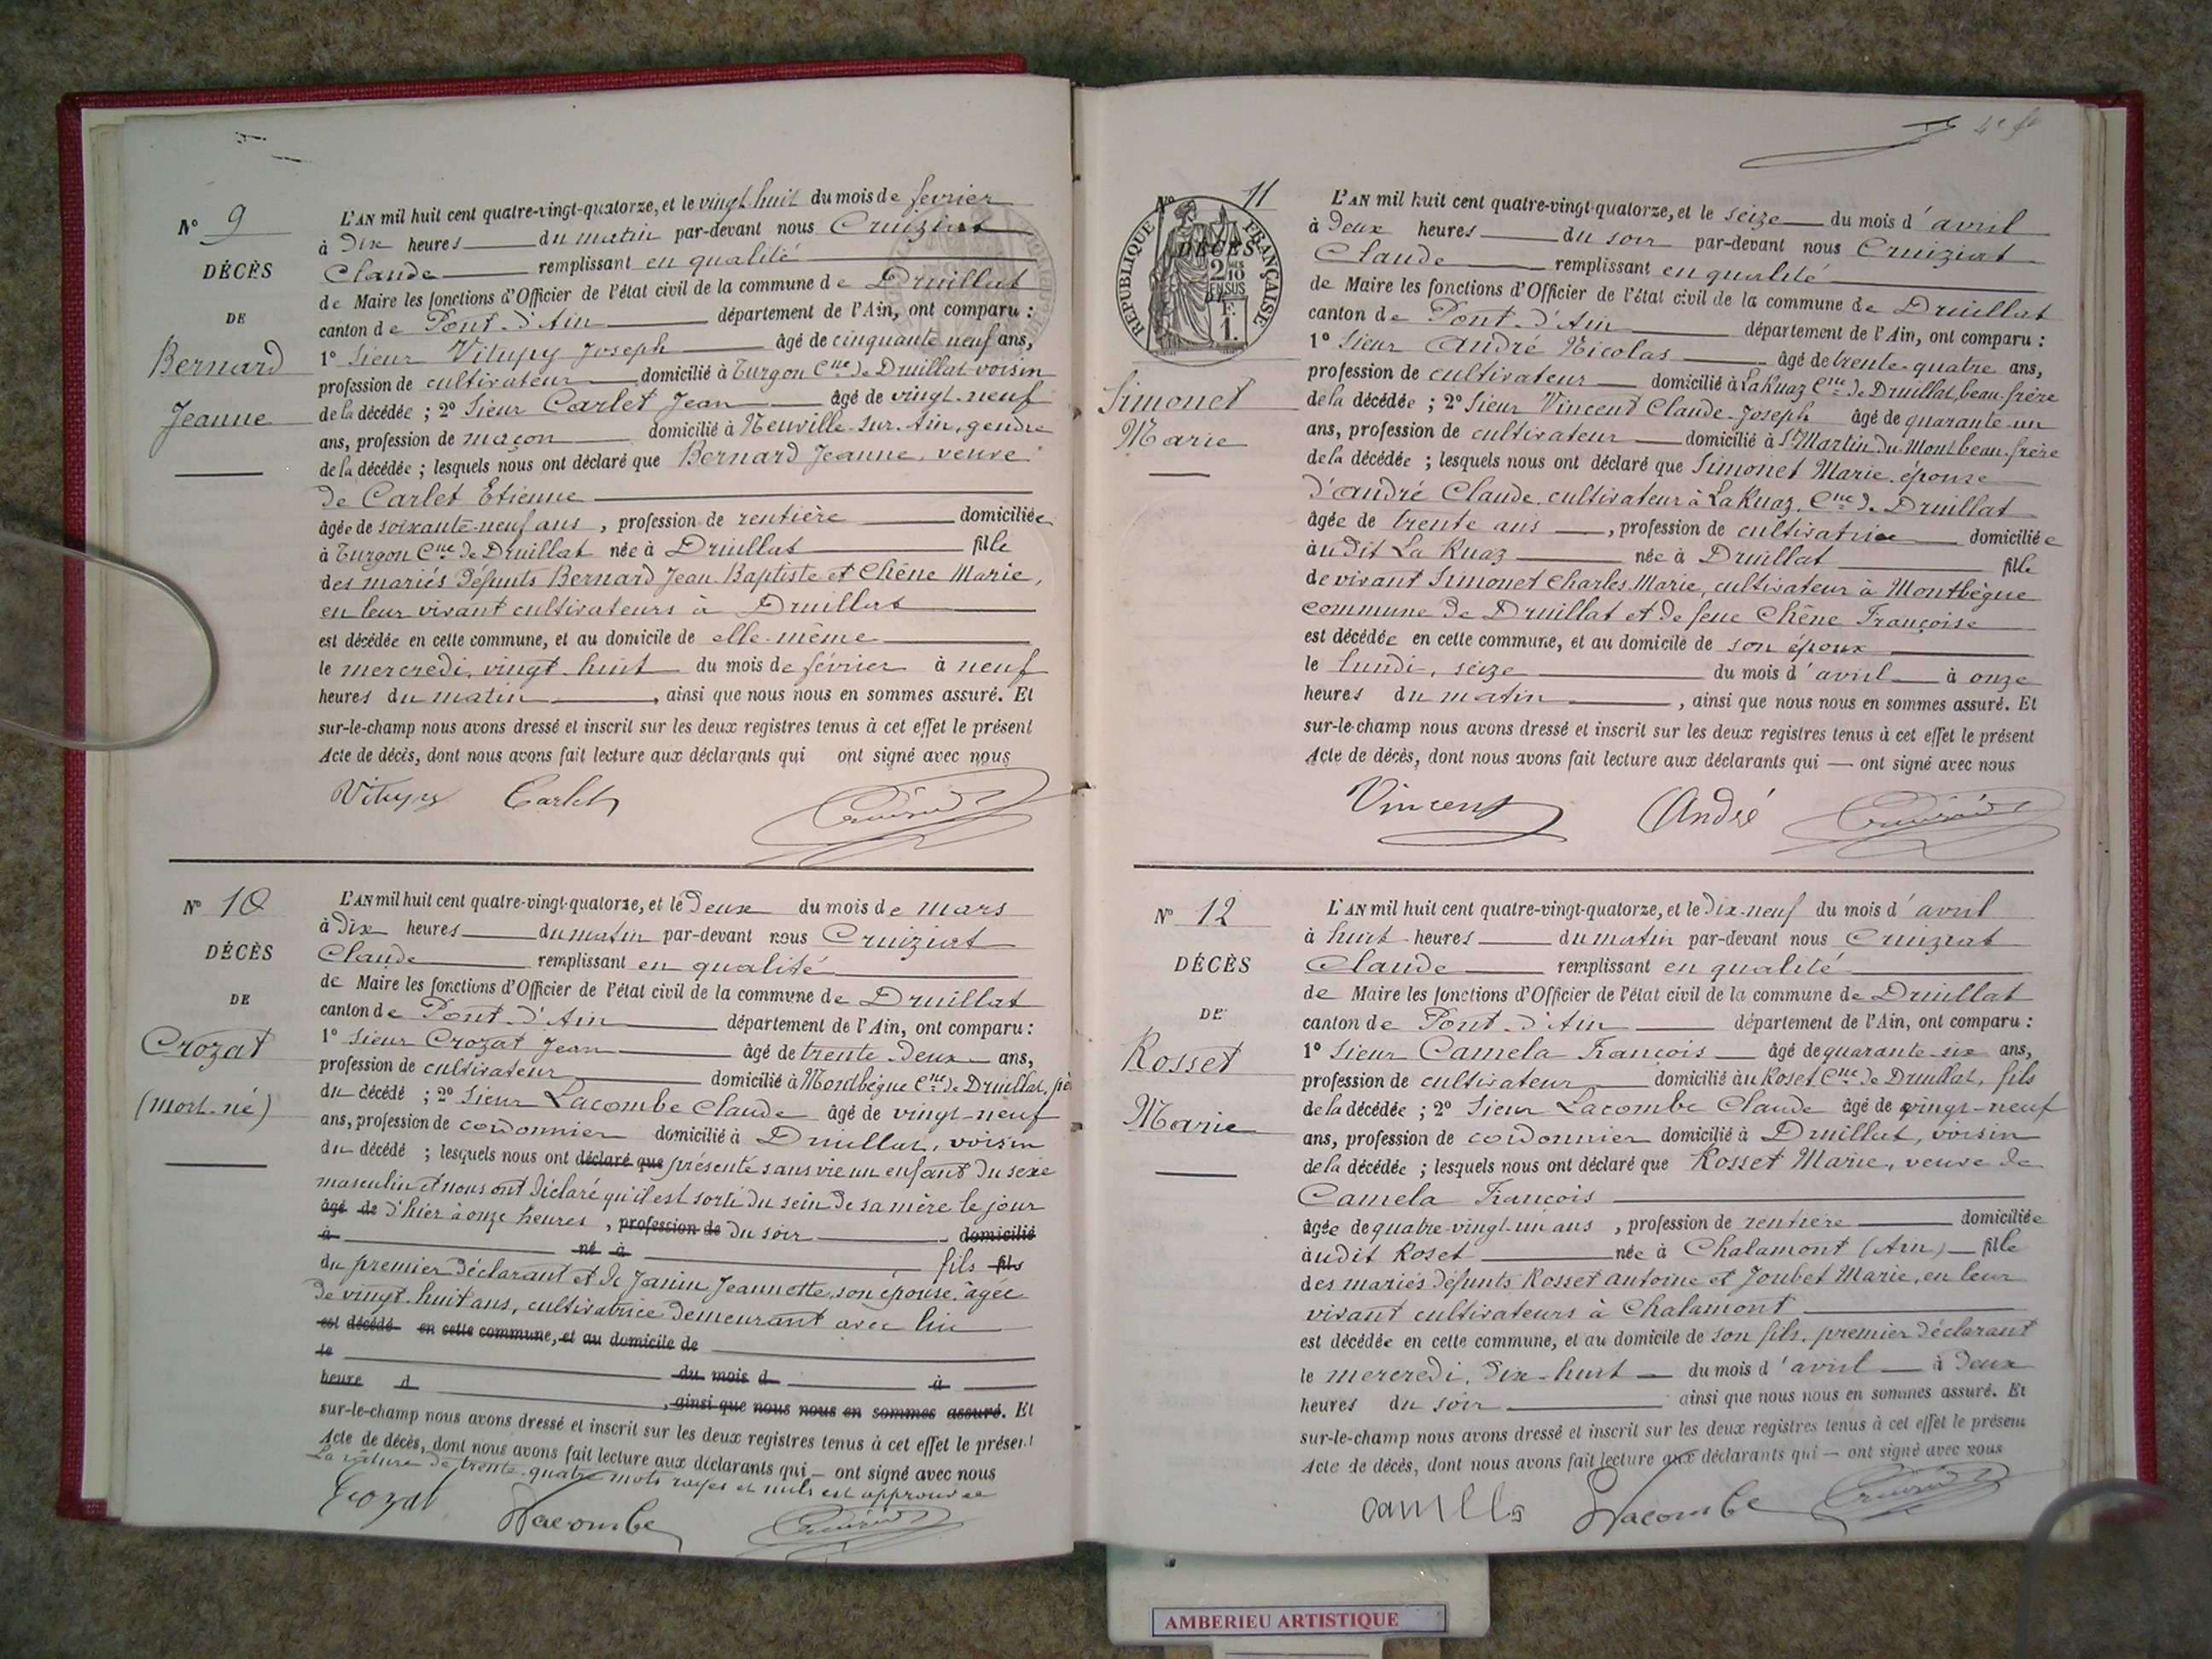 N° 9
DÉCÈS
DE
Bernard
Jeanne
L'AN mil huit cent quatre-vingt-quatorze, et le vingt-huit du mois de fevrier
à Dix heures du matin par-devant nous Cruiziat
Claude remplissant en qualité
de Maire les fonctions d'Officier de l'état civil de la commune de Druillat
canton de Pont-d'Ain département de l'Ain, ont comparu :
1° Sieur Vitupy Joseph âgé de cinquante neuf ans,
profession de cultivateur domicilié à Turgon Cne de Druillat voisin
de la décédée ; 2° Sieur Carlet Jean âgé de vingt-neuf
ans, profession de maçon domicilié à Neuville-sur-Ain, gendre
de la décédée ; lesquels nous ont déclaré que Bernard Jeanne, veuve
de Carlet Etienne
âgée de soixante-neuf ans, profession de rentière domiciliée
à Turgon Cne de Druillat née à Druillat fille
des mariés défunts Bernard Jean-Baptiste et Chêne Marie,
en leur vivant cultivateurs à Druillat
est décédée en cette commune, et au domicile de elle-même
le mercredi, vingt-huit du mois de février à neuf
heures du matin, ainsi que nous nous en sommes assuré. Et
sur-le-champ nous avons dressé et inscrit sur les deux registres tenus à cet effet le présent
Acte de décès, dont nous avons fait lecture aux déclarants qui ont signé avec nous
Vitupy Carlet Cruiziat
N° 10
DÉCÈS
DE
Crozat
(mort-né)
L'AN mil huit cent quatre-vingt-quatorze, et le Deux du mois de mars
à Dix heures du matin par-devant nous Cruiziat
Claude remplissant en qualité
de Maire les fonctions d'Officier de l'état civil de la commune de Druillat
canton de Pont-d'Ain département de l'Ain, ont comparu :
1° Sieur Crozat Jean âgé de trente-deux ans,
profession de cultivateur domicilié à Montbègue Cne de Druillat, père
du décédé ; 2° Sieur Lacombe Claude âgé de vingt-neuf
ans, profession de cordonnier domicilié à Druillat, voisin
du décédé ; lesquels nous ont déclaré que présenté sans vie un enfant du sexe
masculin et nous ont déclaré qu'il est sorti du sein de sa mère le jour
âgé de d'hier à onze heures, profession de du soir domicilié
à né à fils fils
du premier déclarant et de Janin Jeannette, son épouse, âgée
de vingt-huit ans, cultivatrice demeurant avec lui
est décédé en cette commune, et au domicile de
le du mois d à
heure d , ainsi que nous nous en sommes assuré. Et
sur-le-champ nous avons dressé et inscrit sur les deux registres tenus à cet effet le présent
Acte de décès, dont nous avons fait lecture aux déclarants qui — ont signé avec nous
La rature de trente-quatre mots rayés et nuls est approuvée
Crozat Lacombe Cruiziat
4e f
N° 11
RÉPUBLIQUE FRANÇAISE
DÉCÈS
2 MES
10
EN SUS
1 F.
Simonet
Marie
L'AN mil huit cent quatre-vingt-quatorze, et le seize du mois d'avril
à Deux heures du soir par-devant nous Cruiziat
Claude remplissant en qualité
de Maire les fonctions d'Officier de l'état civil de la commune de Druillat
canton de Pont-d'Ain département de l'Ain, ont comparu :
1° Sieur André Nicolas âgé de trente-quatre ans,
profession de cultivateur domicilié à La Ruaz Cne de Druillat, beau-frère
de la décédée ; 2° Sieur Vincent Claude-Joseph âgé de quarante-un
ans, profession de cultivateur domicilié à St Martin-du-Mont beau-frère
de la décédée ; lesquels nous ont déclaré que Simonet Marie, épouse
d'André Claude, cultivateur à La Ruaz, Cne de Druillat
âgée de trente ans, profession de cultivatrice domiciliée
audit La Ruaz née à Druillat fille
de vivant Simonet Charles-Marie, cultivateur à Montbègue
commune de Druillat et de feue Chêne Françoise
est décédée en cette commune, et au domicile de son époux
le lundi, seize du mois d'avril à onze
heures du matin, ainsi que nous nous en sommes assuré. Et
sur-le-champ nous avons dressé et inscrit sur les deux registres tenus à cet effet le présent
Acte de décès, dont nous avons fait lecture aux déclarants qui — ont signé avec nous
Vincent André Cruiziat
N° 12
DÉCÈS
DE
Rosset
Marie
L'AN mil huit cent quatre-vingt-quatorze, et le Dix-neuf du mois d'avril
à huit heures du matin par-devant nous Cruiziat
Claude remplissant en qualité
de Maire les fonctions d'Officier de l'état civil de la commune de Druillat
canton de Pont-d'Ain département de l'Ain, ont comparu :
1° Sieur Camela François âgé de quarante-six ans,
profession de cultivateur domicilié au Roset, Cne de Druillat, fils
de la décédée ; 2° Sieur Lacombe Claude âgé de vingt-neuf
ans, profession de cordonnier domicilié à Druillat, voisin
de la décédée ; lesquels nous ont déclaré que Rosset Marie, veuve de
Camela François
âgée de quatre-vingt-un ans, profession de rentière domiciliée
audit Roset née à Chalamont (Ain) fille
des mariés défunts Rosset Antoine et Joubet Marie, en leur
vivant cultivateurs à Chalamont
est décédée en cette commune, et au domicile de son fils, premier déclarant
le mercredi, dix-huit du mois d'avril à Deux
heures du soir ainsi que nous nous en sommes assuré. Et
sur-le-champ nous avons dressé et inscrit sur les deux registres tenus à cet effet le présent
Acte de décès, dont nous avons fait lecture aux déclarants qui — ont signé avec nous
Camella Lacombe Cruiziat
AMBERIEU ARTISTIQUE